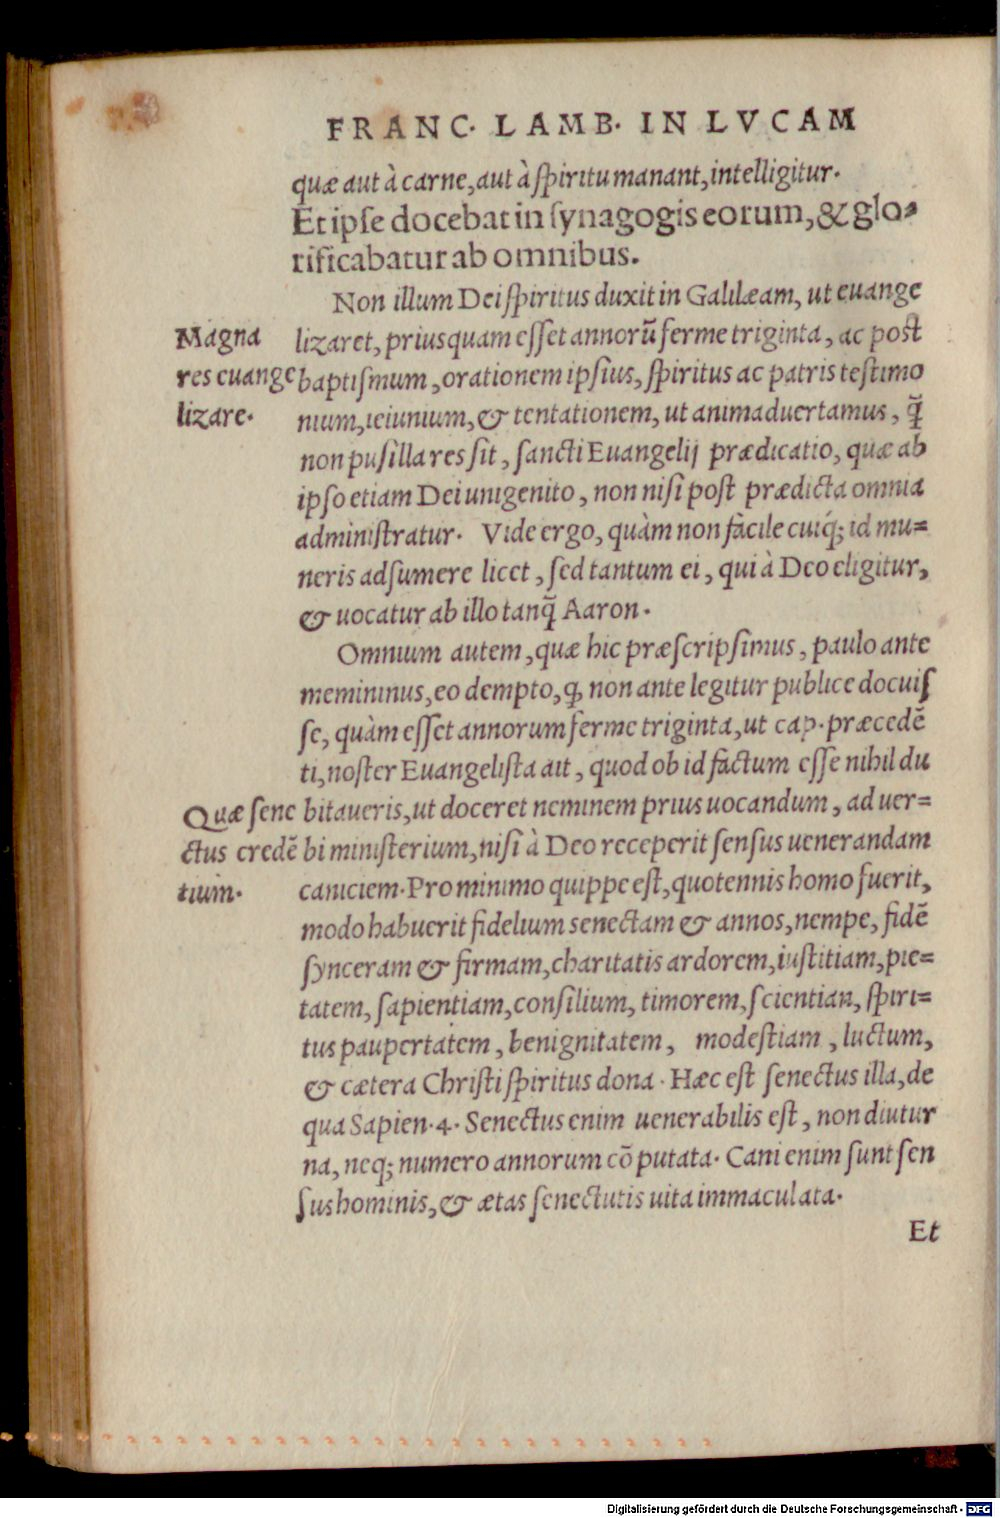 FRANC. LAMB. IN LVCAM
quæ aut à carne, aut à ſpiritu manant, intelligitur.
Et ipſe docebat in ſynagogis eorum, & glo-
rificabatur ab omnibus.
Non illum Dei ſpiritus duxit in Galilæam, ut euange
Magna
res euange
lizare.
lizaret, priusquam eſſet annorū ferme triginta, ac poſt
baptiſmum, orationem ipſius, ſpiritus ac patris teſtimo
nium, ieiunium, & tentationem, ut animaduertamus, q̃
non puſilla res ſit, ſancti Euangelij prædicatio, quæ ab
ipſo etiam Dei unigenito, non niſi poſt prædicta omnia
adminiſtratur. Vide ergo, quàm non facile cuiq́; id mu=
neris adſumere licet, ſed tantum ei, qui à Deo eligitur,
& uocatur ab illo tanq̃ Aaron.
Omnium autem, quæ hic præſcripſimus, paulo ante
meminimus, eo dempto, ꝙ non ante legitur publice docuiſ
ſe, quàm eſſet annorum ferme triginta, ut cap. præcedē
ti, noſter Euangeliſta ait, quod ob id factum eſſe nihil du
Quæ ſene
ctus credē
tium.
bitaueris, ut doceret neminem prius uocandum, ad uer=
bi miniſterium, niſi à Deo receperit ſenſus uenerandam
caniciem. Pro minimo quippe eſt, quotennis homo fuerit,
modo habuerit fidelium ſenectam & annos, nempe, fidē
ſynceram & firmam, charitatis ardorem, iuſtitiam, pie=
tatem, ſapientiam, conſilium, timorem, ſcientian, ſpiri=
tus paupertatem, benignitatem, modeſtiam, luctum,
& cætera Chriſti ſpiritus dona. Hæc eſt ſenectus illa, de
qua Sapien. 4. Senectus enim uenerabilis eſt, non diutur
na, neq; numero annorum cō putata. Cani enim ſunt ſen
ſus hominis, & ætas ſenectutis uita immaculata.
Et
Digitalisierung gefördert durch die Deutsche Forschungsgemeinschaft - DFG